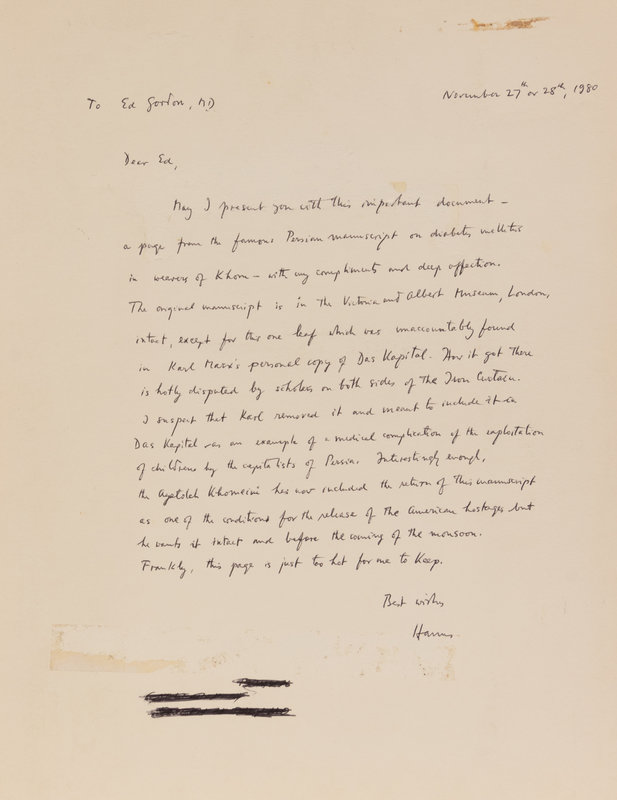 November 27th or 28th, 1980
To Ed Gordon, M.D
Dear Ed,
May I present you with this important document –
a page from the famous Persian manuscript on diabetes mellitis
in weavers of Khom – with my compliments and deep affection.
The original manuscript is in the Victoria and Albert Museum, London,
intact, except for this one leaf which was unaccountably found
in Karl Marx's personal copy of Das Kapital. How it got there
is hotly disputed by scholars on both sides of the Iron Curtain.
I suspect that Karl removed it and meant to include it in
Das Kapital as an example of a medical complication of the exploitation
of children by the capitalists of Persia. Interestingly enough,
the Ayatolah Khomeini has now included the return of this manuscript
as one of the conditions for the release of the American hostages but
he wants it intact and before the coming of the monsoon.
Frankly, this page is just too hot for me to keep.
Best wishes